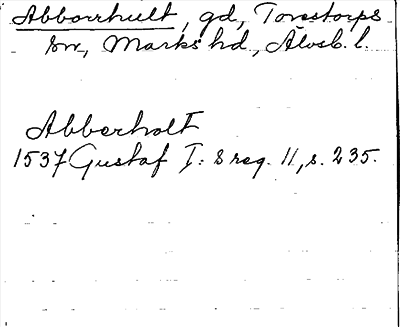 Abborrhult, gd, Torestorps
sn, Marks hd, Älvsb. l.
Abberholt
1537 Gustaf I:s reg. 11, s. 235.